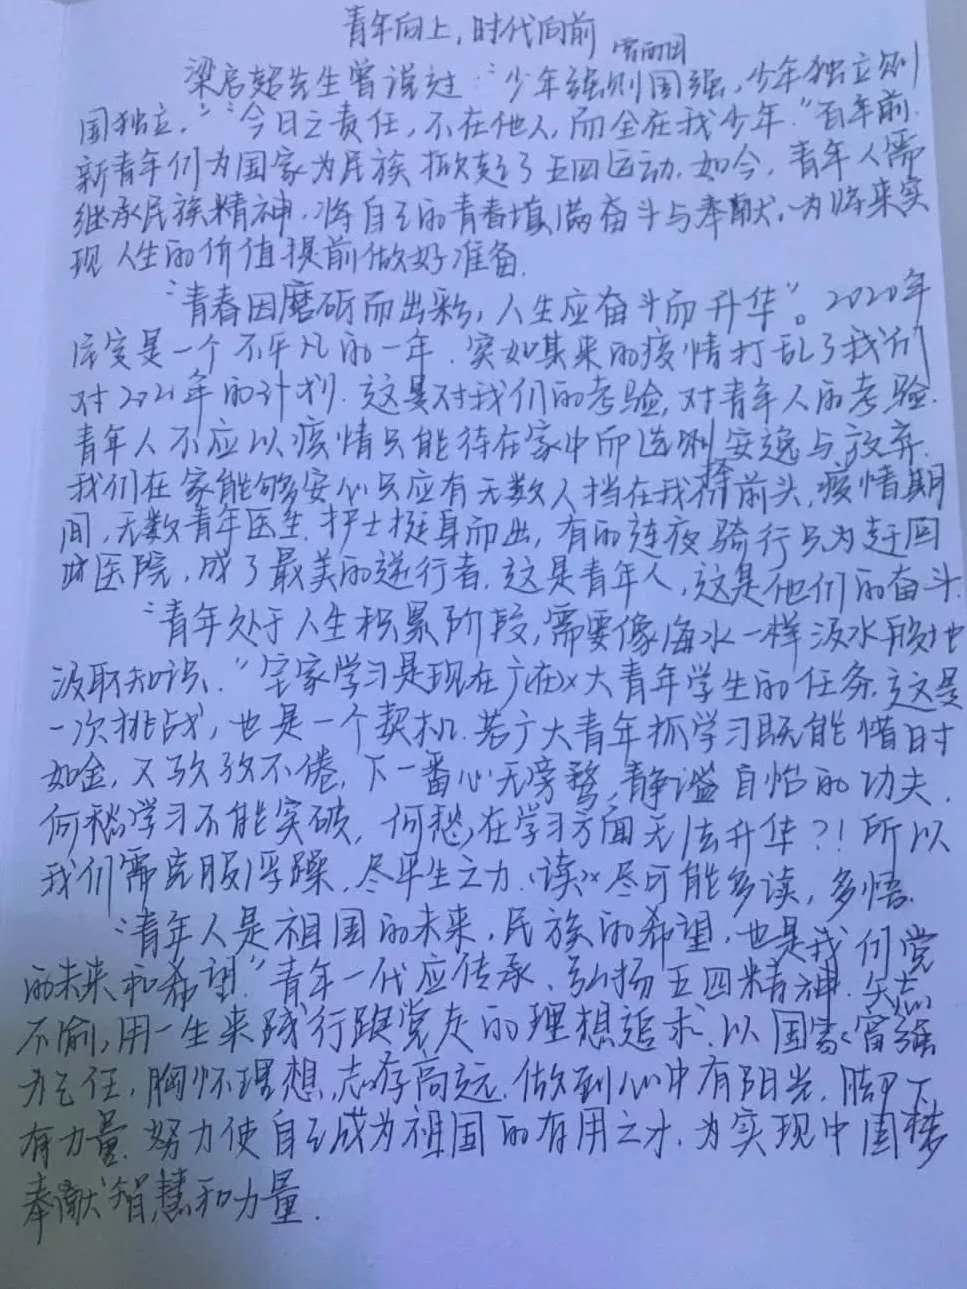 青年向上，时代向前
梁启超先生曾说过："少年强则国强，少年独立则
国独立。""今日之责任，不在他人，而全在我少年。"百年前，
新青年们为国家为民族掀起了五四运动。如今，青年人需
继承民族精神，将自己的青春填满奋斗与奉献，为将来实
现人生的价值提前做好准备。
"青春因磨砺而出彩，人生应奋斗而升华"。2020年
注定是一个不平凡的一年，突如其来的疫情打乱了我们
对2021年的计划。这是对我们的考验，对青年人的考验。
青年人不应以疫情只能待在家中而选择安逸与放弃。
我们在家能够安心只应有无数人挡在我们前头，疫情期
间，无数青年医生、护士挺身而出，有的连夜骑行只为赶回
医院，成了最美的逆行者。这是青年人，这是他们的奋斗。
"青年处于人生积累阶段，需要像海水一样汲水般地
汲取知识。"宅家学习是现在广大青年学生的任务，这是
一次挑战，也是一个契机。若广大青年抓学习既能惜时
如金，又孜孜不倦，下一番心无旁骛，静谧自怡的功夫，
何愁学习不能突破，何愁在学习方面无法升华？！所以
我们需克服浮躁，尽平生之力，尽可能多读，多悟。
"青年人是祖国的未来，民族的希望，也是我们党
的未来和希望"青年一代应传承、弘扬五四精神，矢志
不愉，用一生来践行跟党走的理想追求，以国家富强
为己任，胸怀理想，志存高远，做到心中有阳光，脚下
有力量，努力使自己成为祖国的有用之才，为实现中国梦
奉献智慧和力量。